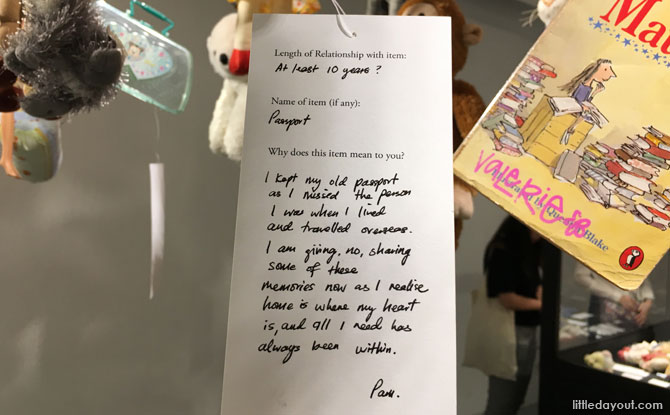 Length of Relationship with item:
At least 10 years?
Name of item (if any):
Passport
Why does this item mean to you?
I kept my old passport
as I missed the person
I was when I lived
and travelled overseas.
I am giving, no, sharing
some of these
memories now as I realise
home is where my heart
is, and all I need has
always been within.
Pam.
VALERIE
Blake
littledayout.com